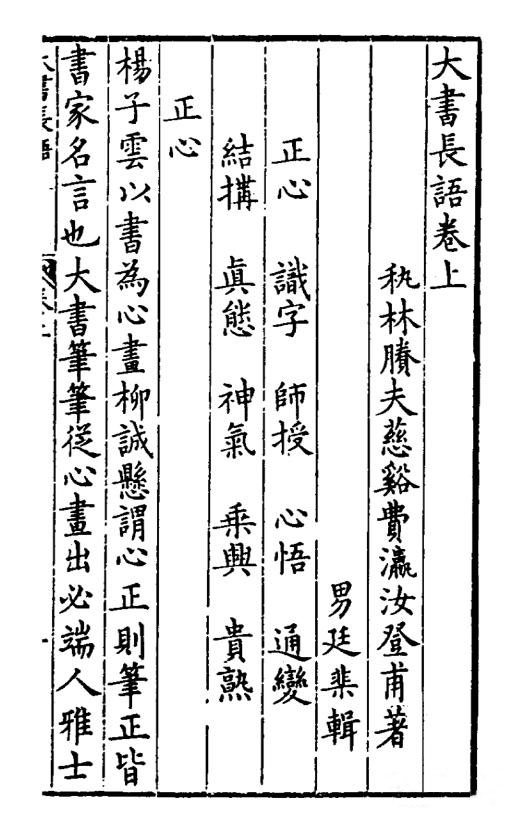 大書長語卷上
秇林賸夫慈谿費瀛汝登甫著
男廷棐輯
正心 識字 師授 心悟 通變
結搆 眞態 神氣 乗興 貴熟
正心
楊子雲以書為心畫柳誠懸謂心正則筆正皆
書家名言也大書筆筆從心畫出必端人雅士
大書長語 卷上 一